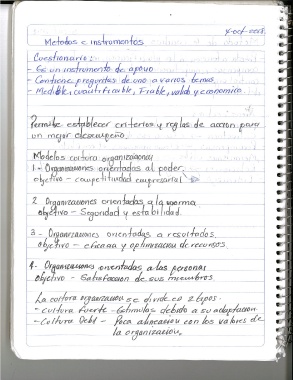 4-oct-2008.
Metodos e instrumentos
Cuestionario:
- Es un instrumento de apoyo
- Contiene preguntas de uno a varios temas.
- Medible, cuantificable, Fiable, valido y economico.
Permite establecer criterios y reglas de accion para
un mejor desempeño.
Modelos cultura organizacional
1.- Organizaciones orientadas al poder.
objetivo - competitividad empresarial.
2. Organizaciones orientadas a la norma
objetivo - Seguridad y estabilidad.
3.- Organizaciones orientadas a resultados.
objetivo - eficacia y optimizacion de recursos.
4.- Organizaciones orientadas a las personas
objetivo - Satisfaccion de sus miembros.
La cultura organizacion se divide en 2 tipos.
- cultura Fuerte - Estimulos debido a su adaptacion.
- Cultura Debil - Poca alineacion con los valores de
la organizacion.